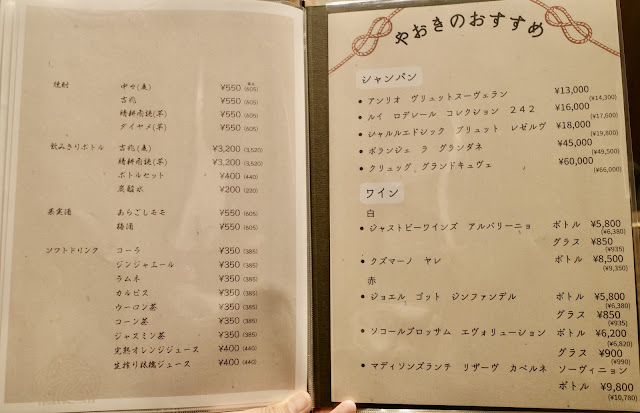 焼酎 中々(麦) ¥550 税込(605)
吉兆 ¥550 (605)
晴耕雨読(芋) ¥550 (605)
ダイヤメ(芋) ¥550 (605)
飲みきりボトル 吉兆(麦) ¥3,200 (3,520)
晴耕雨読(芋) ¥3,200 (3,520)
ボトルセット ¥400 (440)
炭酸水 ¥200 (220)
果実酒 あらごしモモ ¥550 (605)
梅酒 ¥550 (605)
ソフトドリンク コーラ ¥350 (385)
ジンジャエール ¥350 (385)
ラムネ ¥350 (385)
カルピス ¥350 (385)
ウーロン茶 ¥350 (385)
コーン茶 ¥350 (385)
ジャスミン茶 ¥350 (385)
完熟オレンジジュース ¥400 (440)
生搾り林檎ジュース ¥400 (440)
やおきのおすすめ
シャンパン
• アンリオ ヴリュットスーヴェラン ¥13,000
(¥14,300)
• ルイ ロデレール コレクション 242 ¥16,000
(¥17,600)
• シャルルエドジック ブリュット レゼルヴ ¥18,000
(¥19,800)
• ボランジェ ラ グランダネ ¥45,000
(¥49,500)
• クリュッグ グランドキュヴェ ¥60,000
(¥66,000)
ワイン
白
• ジャストビーワインズ アルバリーニョ ボトル ¥5,800
(¥6,380)
グラス ¥850
(¥935)
• クズマーノ ヤレ ボトル ¥8,500
(¥9,350)
赤
• ジョエル ゴット ジンファンデル ボトル ¥5,800
(¥6,380)
グラス ¥850
(¥935)
• ソコールブロッサム エヴォリューション ボトル ¥6,200
(¥6,820)
グラス ¥900
(¥990)
• マディソンズランチ リザーヴ カベルネ ソーヴィニョン
ボトル ¥9,800
(¥10,780)